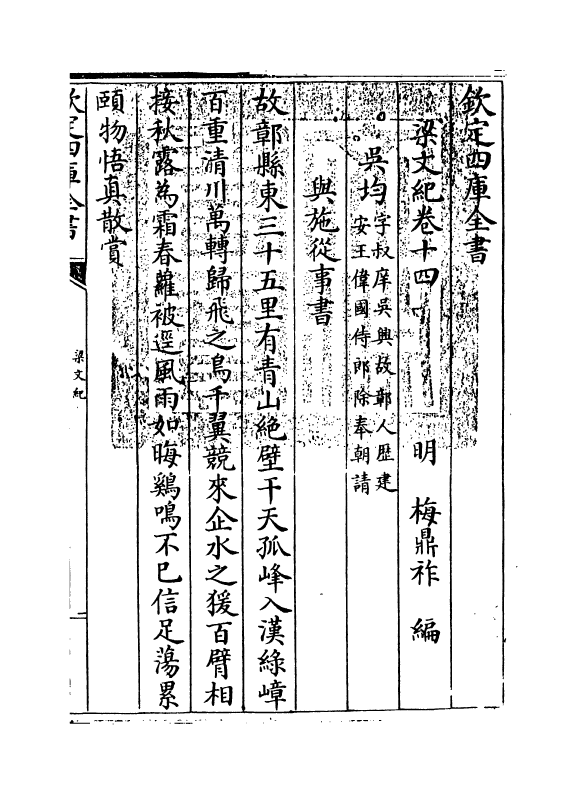 欽定四庫全書
梁文紀卷十四
明 梅鼎祚 編
吳均字叔庠吳興故鄣人歷建
安王偉國侍郎除奉朝請
與施從事書
故鄣縣東三十五里有青山絶壁干天孤峰入漢綠嶂
百重清川萬轉歸飛之鳥千翼競來企水之猨百臂相
接秋露為霜春蘿被逕風雨如晦鷄鳴不已信足蕩累
頤物悟真散賞
欽定四庫全書
梁文紀